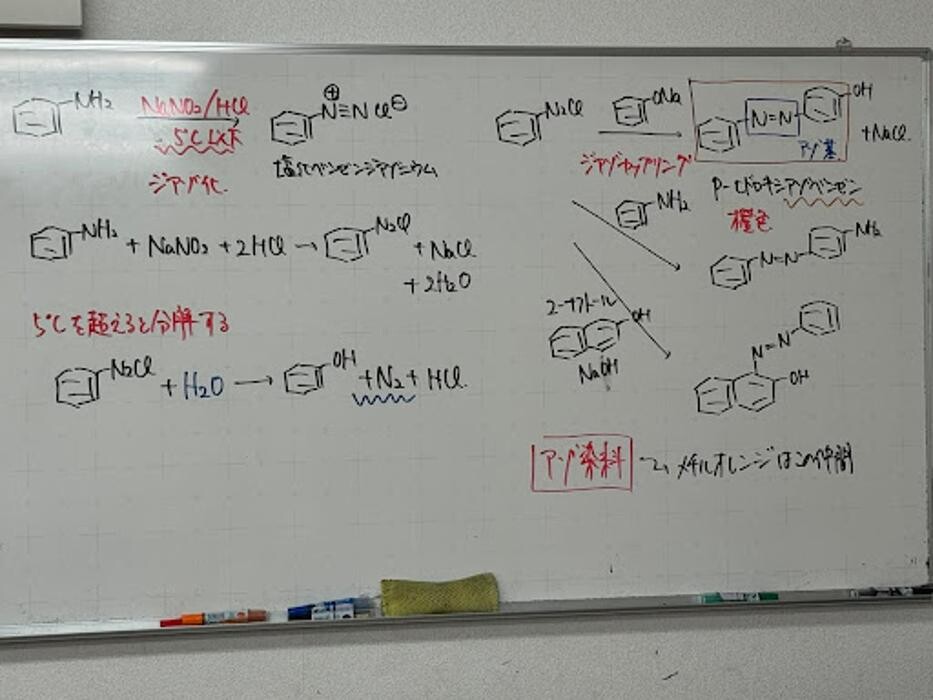 NH₂ NaNO₂/HCl N≡N Cl⊖
⊕
5℃以下
ジアゾ化 塩化ベンゼンジアゾニウム
NH₂ + NaNO₂ + 2HCl → N₂Cl + NaCl
+ 2H₂O
5℃を超えると分解する
N₂Cl + H₂O → OH + N₂ + HCl
N₂Cl ONa N=N OH + NaCl
アゾ基
ジアゾカップリング
p-ヒドロキシアゾベンゼン
橙色
NH₂ N=N NH₂
2-ナフトール
OH
NaOH
N=N
OH
アゾ染料 メチルオレンジはこの仲間